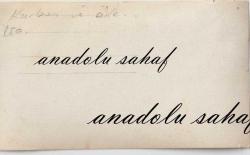 Kurban ve âile
150.
anadolu sahaf
anadolu sahaf